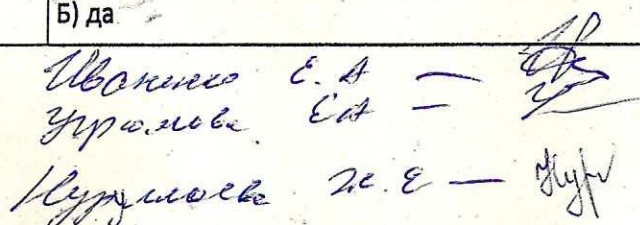 Б) да
Иваненко Е.А —
Угрюмова ЕА —
Нуруллаева Ж.Е — Нур